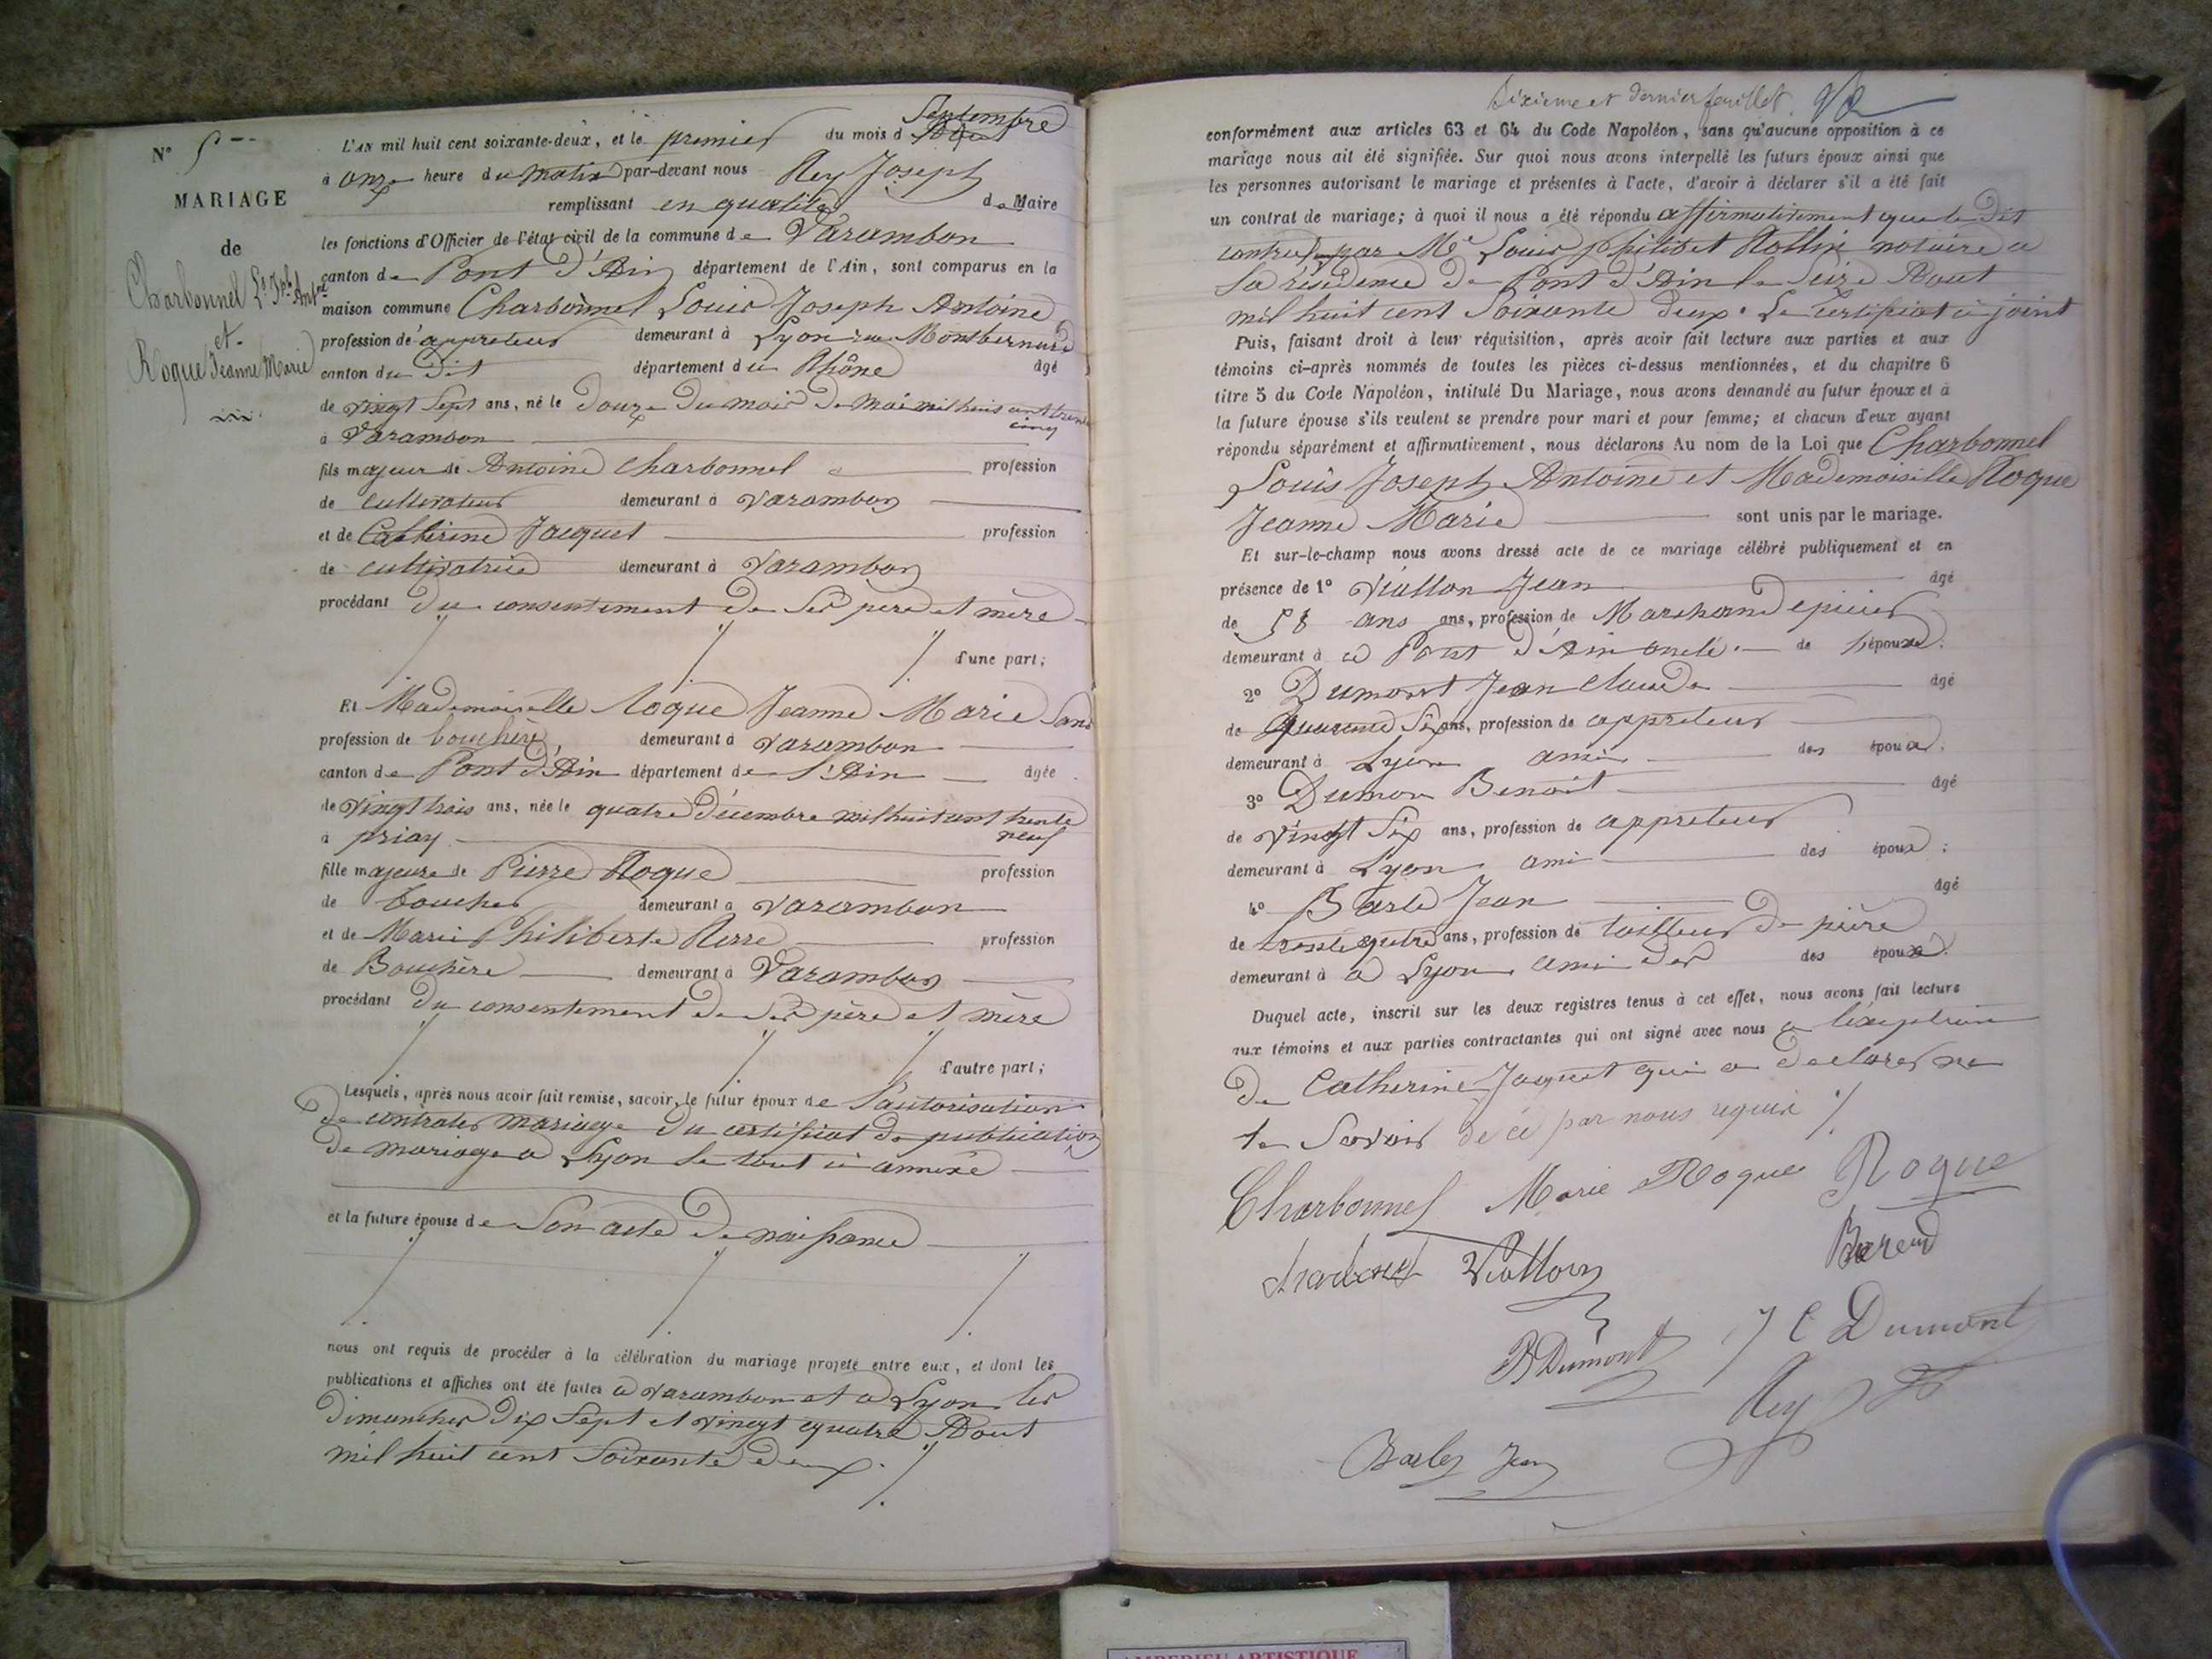 N° 5
MARIAGE
de
Charbonnel Ls Jph Antne
et
Roque Jeanne Marie
L'AN mil huit cent soixante-deux, et le premier du mois d Septembre
à onze heure du matin par-devant nous Rey Joseph
remplissant en qualité de Maire
les fonctions d'Officier de l'état civil de la commune de Varambon
canton de Pont d'Ain département de l'Ain, sont comparus en la
maison commune Charbonnel Louis Joseph Antoine
profession de appreteur demeurant à Lyon rue Montbernard
canton du dit département du Rhône âgé
de vingt sept ans, né le douze du mois de mai mil huit cent trente
cinq
à Varambon
fils majeur de Antoine Charbonnel profession
de cultivateur demeurant à Varambon
et de Catherine Jacquet profession
de cultivatrice demeurant à Varambon
procédant du consentement de ses pere et mère
d'une part;
Et Mademoiselle Roque Jeanne Marie Sans
profession de bouchère demeurant à Varambon
canton de Pont d'Ain département de l'Ain âgée
de vingt trois ans, née le quatre décembre mil huit cent trente
neuf
à priay
fille majeure de Pierre Roque profession
de boucher demeurant à Varambon
et de Marie Philiberte profession
de Bouchère demeurant à Varambon
procédant du consentement de ses père et mère
d'autre part;
Lesquels, après nous avoir fait remise, savoir, le futur époux de l'autorisation
de contrater mariage du certificat de publication
de mariage a Lyon le tout ci annexé
et la future épouse de son acte de naissance
nous ont requis de procéder à la célébration du mariage projeté entre eux, et dont les
publications et affiches ont été faites a Varambon et a Lyon les
dimanches dix sept et vingt quatre Aout
mil huit cent soixante deux.
Sixieme et dernier feuillet
conformément aux articles 63 et 64 du Code Napoléon, sans qu'aucune opposition à ce
mariage nous ait été signifiée. Sur quoi nous avons interpellé les futurs époux ainsi que
les personnes autorisant le mariage et présentes à l'acte, d'avoir à déclarer s'il a été fait
un contrat de mariage; à quoi il nous a été répondu affirmativement que le dit
par Me Louis Rollin notaire a
la résidence de Pont d'Ain le seize Aout
mil huit cent soixante deux. Le certificat ci joint
Puis, faisant droit à leur réquisition, après avoir fait lecture aux parties et aux
témoins ci-après nommés de toutes les pièces ci-dessus mentionnées, et du chapitre 6
titre 5 du Code Napoléon, intitulé Du Mariage, nous avons demandé au futur époux et à
la future épouse s'ils veulent se prendre pour mari et pour femme; et chacun d'eux ayant
répondu séparément et affirmativement, nous déclarons Au nom de la Loi que Charbonnel
Louis Joseph Antoine et Mademoiselle Roque
Jeanne Marie sont unis par le mariage.
Et sur-le-champ nous avons dressé acte de ce mariage célébré publiquement et en
présence de 1° Viallon Jean âgé
de 58 ans ans, profession de Marchand epicier
demeurant à a Pont d'Ain oncle de l'épouse.
2° Dumont Jean Claude âgé
de quarante six ans, profession de appreteur
demeurant à Lyon ami des époux.
3° Dumon Benoit âgé
de vingt six ans, profession de appreteur
demeurant à Lyon ami des époux;
4° Barle Jean âgé
de trente quatre ans, profession de tailleur de pière
demeurant à a Lyon ami des des époux.
Duquel acte, inscrit sur les deux registres tenus à cet effet, nous avons fait lecture
aux témoins et aux parties contractantes qui ont signé avec nous a l'exeption
de Catherine Jaquet qui a declarer ne
le savoir de ce par nous requise
Charbonnel Marie Roque Roque
Viallon
B Dumont J C Dumont
Rey
Barle Jean
AMBERIEU ARTISTIQUE